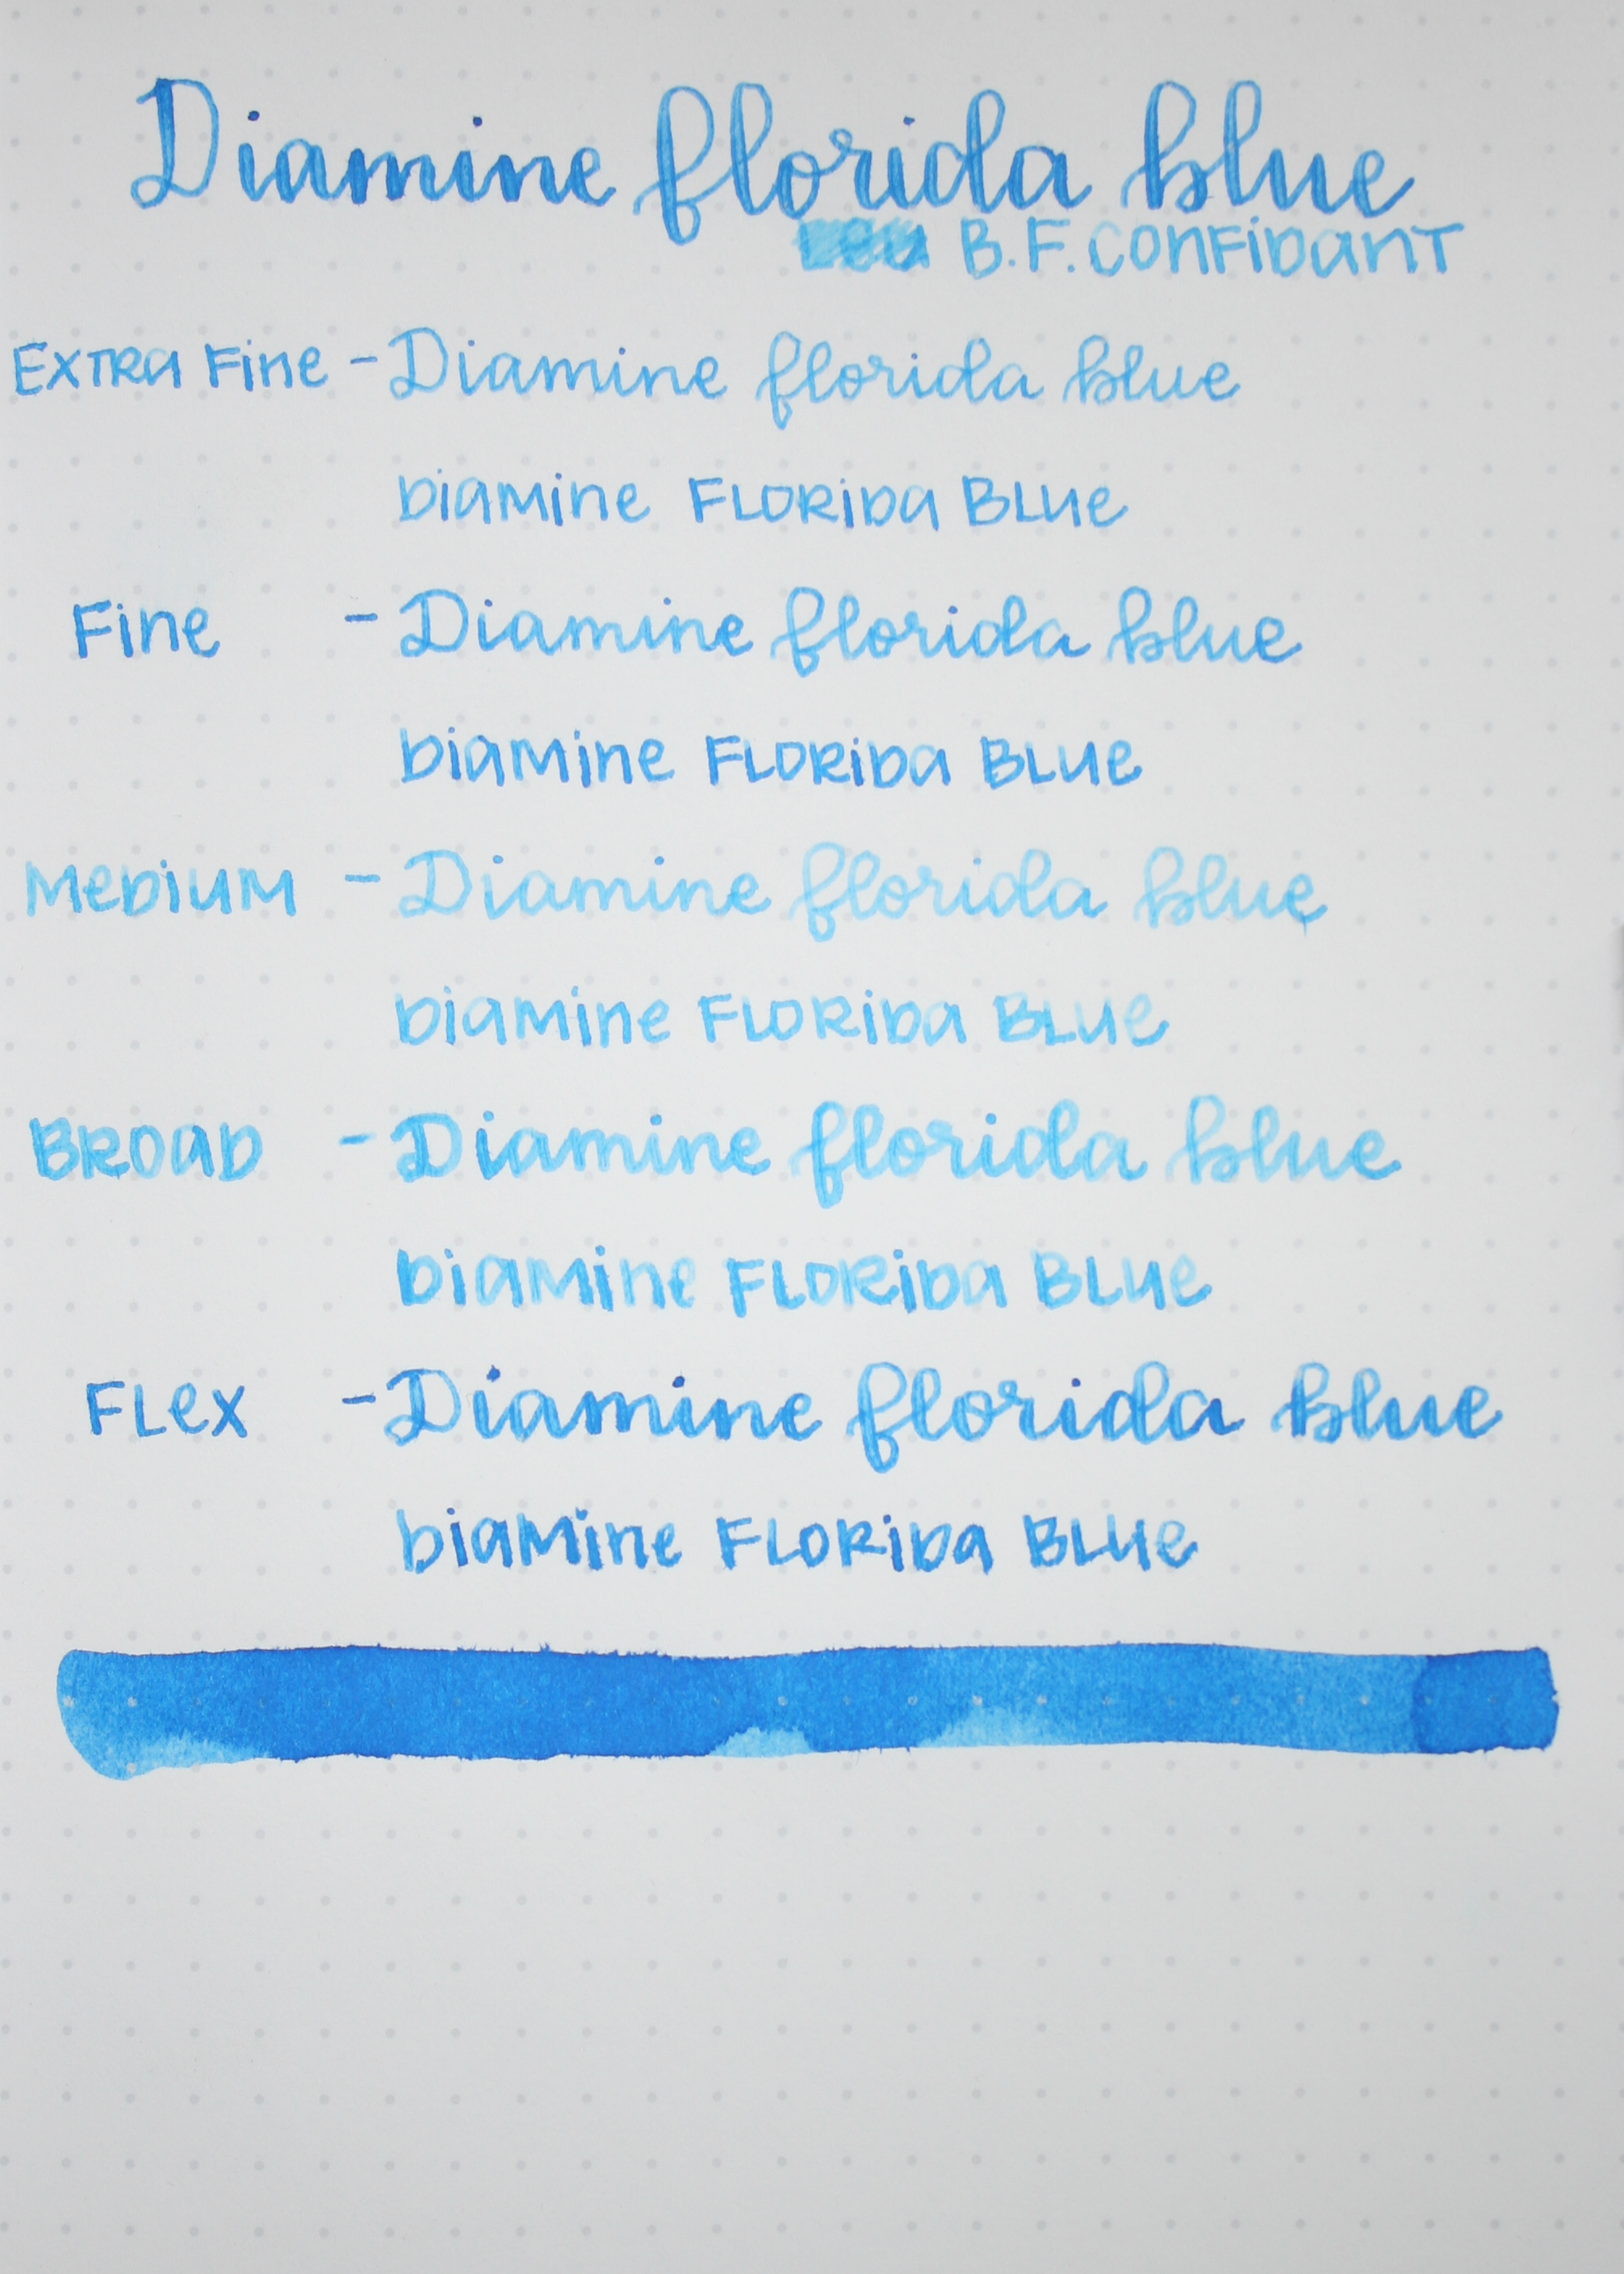 Diamine florida blue
B.F. CONFIDANT
EXTRA Fine - Diamine florida blue
DiaMine FLORiDa BLUe
Fine - Diamine florida blue
DiaMine FLORiDa BLUe
MeDiUM - Diamine florida blue
DiaMine FLORiDa BLUe
BROaD - Diamine florida blue
DiaMine FLORiDa BLUe
FLex - Diamine florida blue
DiaMine FLORiDa BLUe